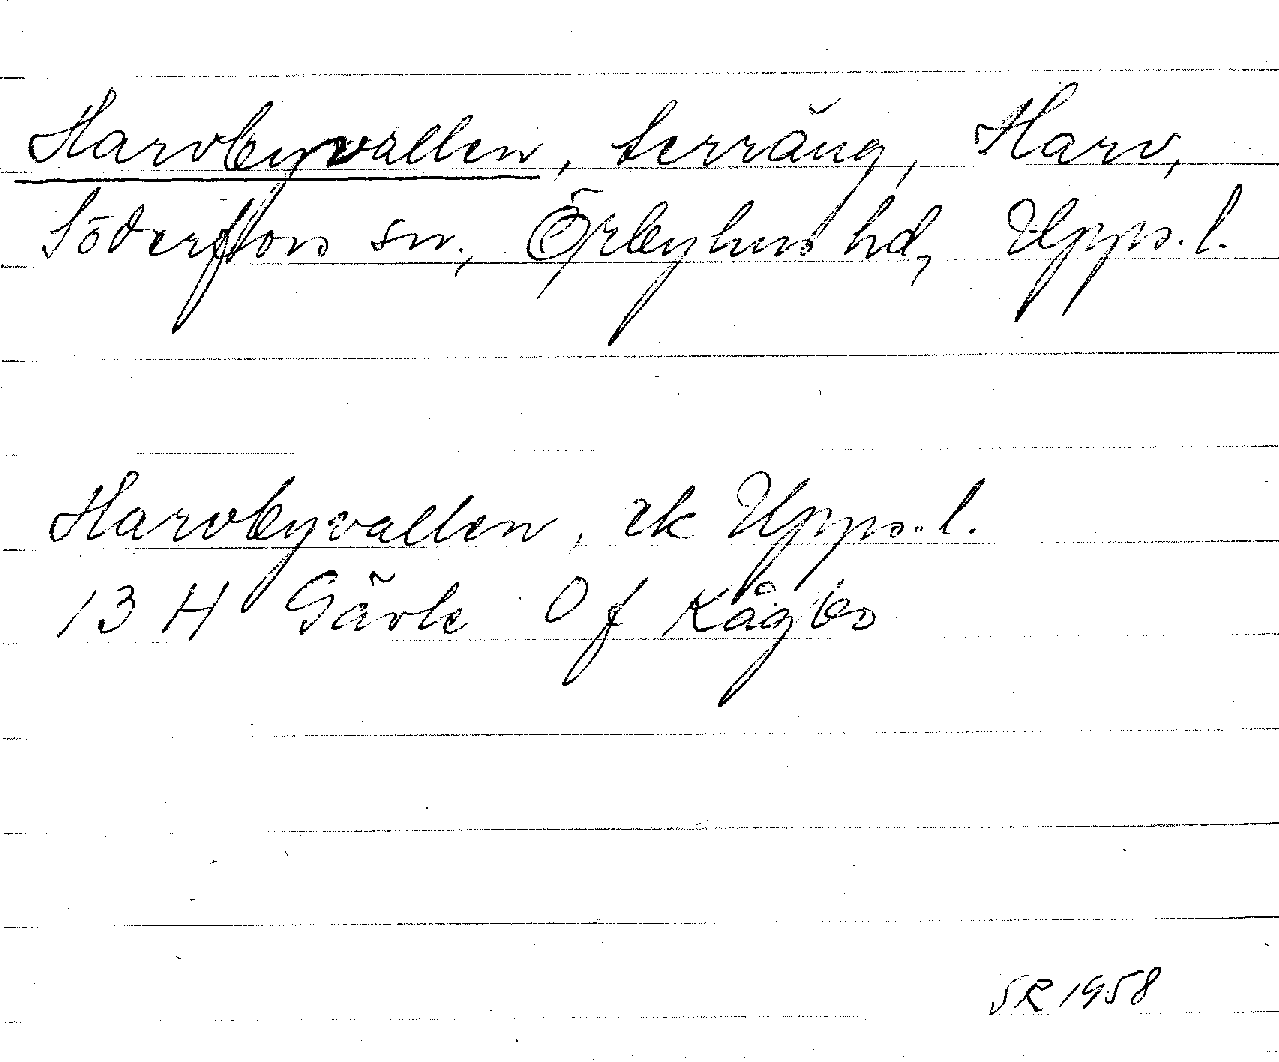 Harvbyvallen, terräng, Harv,
Söderfors sn., Örbyhus hd, Upps. l.
Harvbyvallen, ek Upps. l.
13 H Gävle 0 f Kågbo
SR 1958